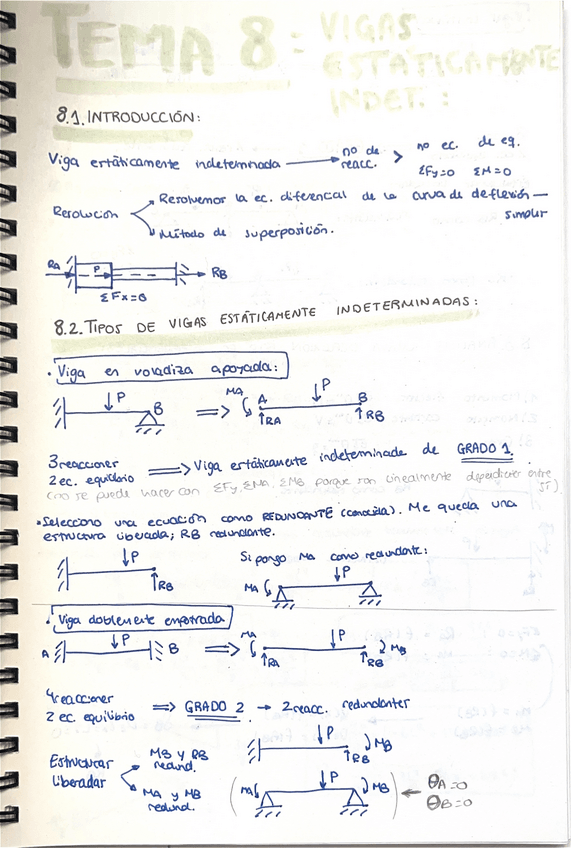 TEMA 8: VIGAS
ESTÁTICAMENTE
INDET.:
8.1. INTRODUCCIÓN:
Viga estáticamente indeterminada → no de reacc. > no ec. de eq.
ΣFy=0 ΣM=0
Resolución
Resolvemos la ec. diferencial de la curva de deflexión —
simplif
Método de superposición.
RA P RB
ΣFx=0
8.2. TIPOS DE VIGAS ESTÁTICAMENTE INDETERMINADAS:
• Viga en voladiza apoyada:
P B ⇒ MA A P B
RA RB
3 reacciones
2 ec. equilibrio ⇒ Viga estáticamente indeterminada de GRADO 1.
(no se puede hacer con ΣFy, ΣMA, ΣMB porque son linealmente dependientes entre
sí)
• Selecciono una ecuación como REDUNDANTE (conocida). Me queda una
estructura liberada; RB redundante.
Si pongo MA como redundante:
P RB MA P
• Viga doblemente empotrada
A P B ⇒ MA P MB
RA RB
4 reacciones
2 ec. equilibrio ⇒ GRADO 2 → 2 reacc. redundantes
Estructuras
liberadas
MB y RB
redund.
P MB
RB
MA y MB
redund.
(MA P MB) ← θA=0
θB=0